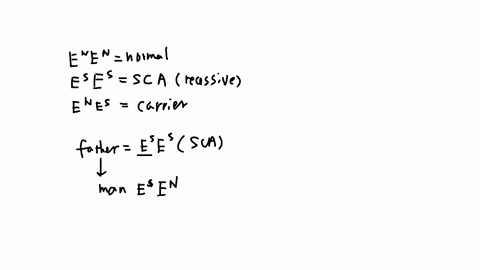 E^N E^N = normal
E^S E^S = SCA (recessive)
E^N E^S = carrier
father = E^S E^S (SCA)
↓
man E^S E^N